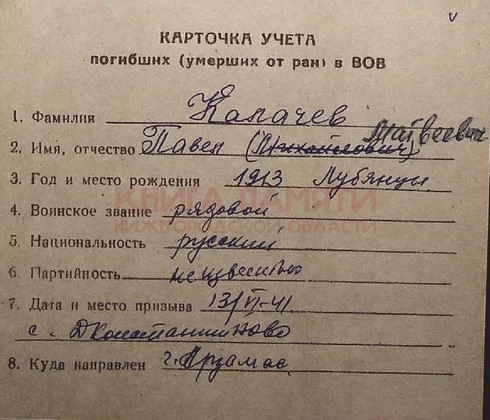 КАРТОЧКА УЧЕТА
погибших (умерших от ран) в ВОВ
1. Фамилия Калачев
Матвеевич
2. Имя, отчество Павел (Михайлович)
3. Год и место рождения 1913 Лубянцы
КНИГА ПАМЯТИ
4. Воинское звание рядовой
НИЖЕГОРОДСКОЙ ОБЛАСТИ
5. Национальность русский
6. Партийность неизвестно
7. Дата и место призыва 13/VI-41
с. Дконстантиново
8. Куда направлен г. Арзамас